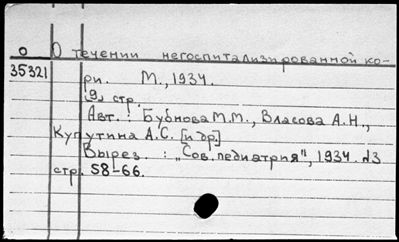 О О течении негоспитализированной ко-
35321 ри. М., 1934.
9 стр.
Авт.: Бубнова М.М., Власова А.Н.,
Купутина А.С. [и др]
Вырез. : „Сов. педиатрия", 1934. №3
стр. 58-66.